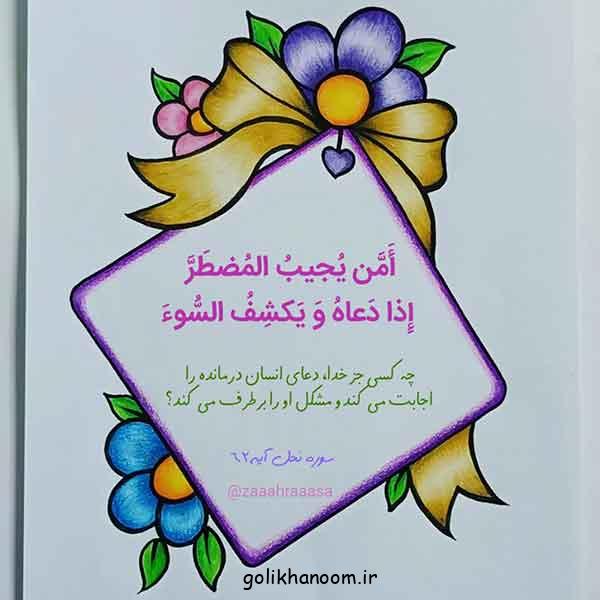 أَمَّن يُجيبُ المُضطَرَّ
إِذا دَعاهُ وَ يَكشِفُ السُّوءَ
چه کسی جز خدا، دعای انسان درمانده را
اجابت می کند و مشکل او را برطرف می کند؟
سوره نحل آیه ٦٢
@zaaahraaasa
golikhanoom.ir